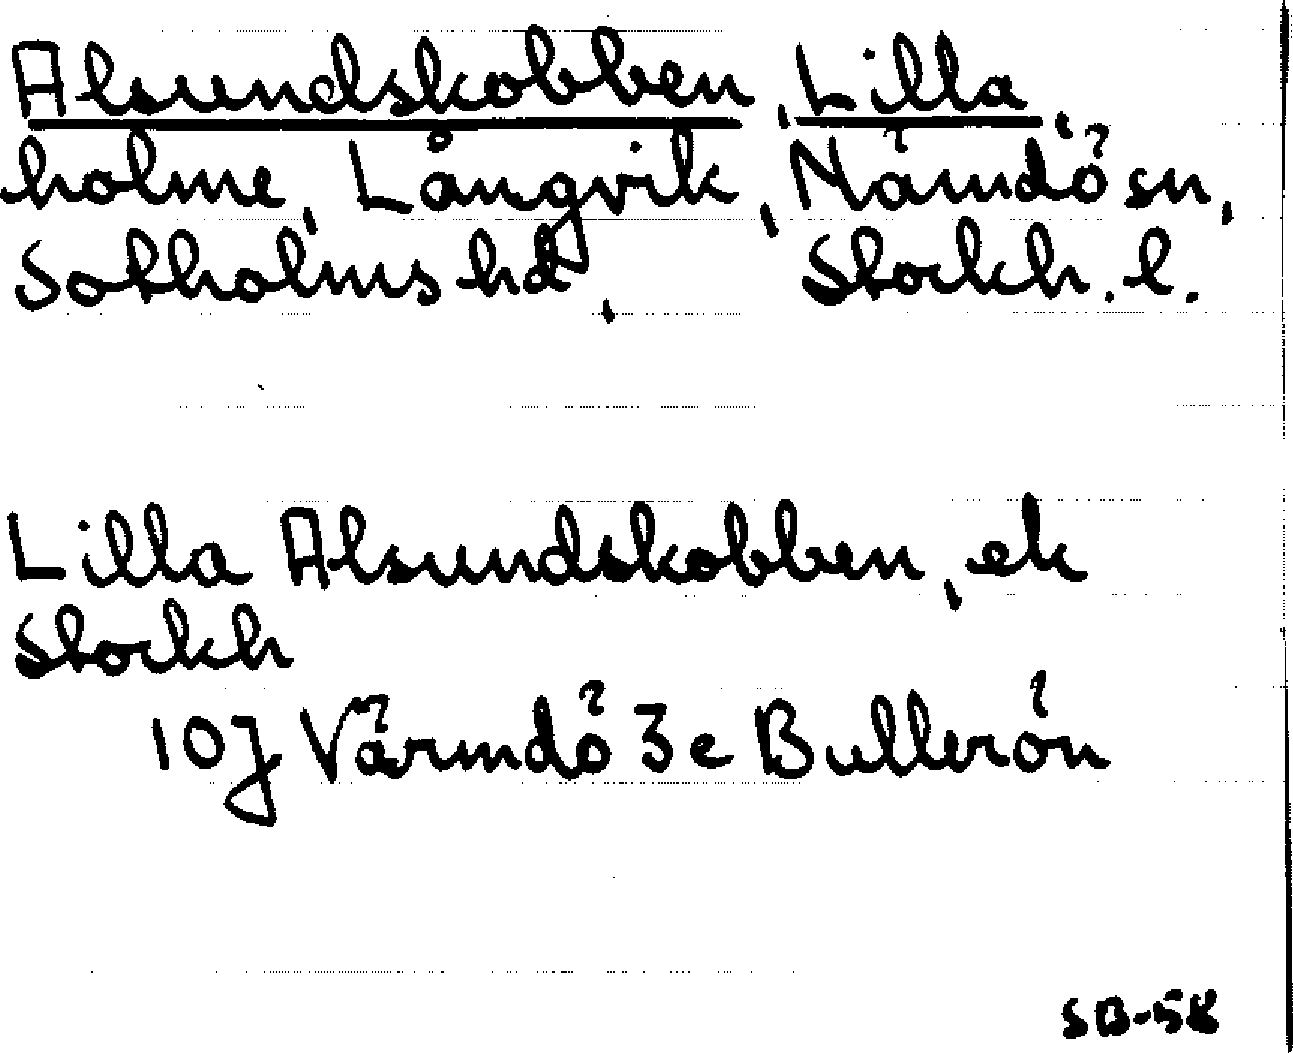 Alsundskobben, Lilla,
holme, Långvik, Nämdö sn,
Sotholms hd, Stockh. l.
Lilla Alsundskobben, ek
Stockh
10J Värmdö 3e Bullerön
SB-58